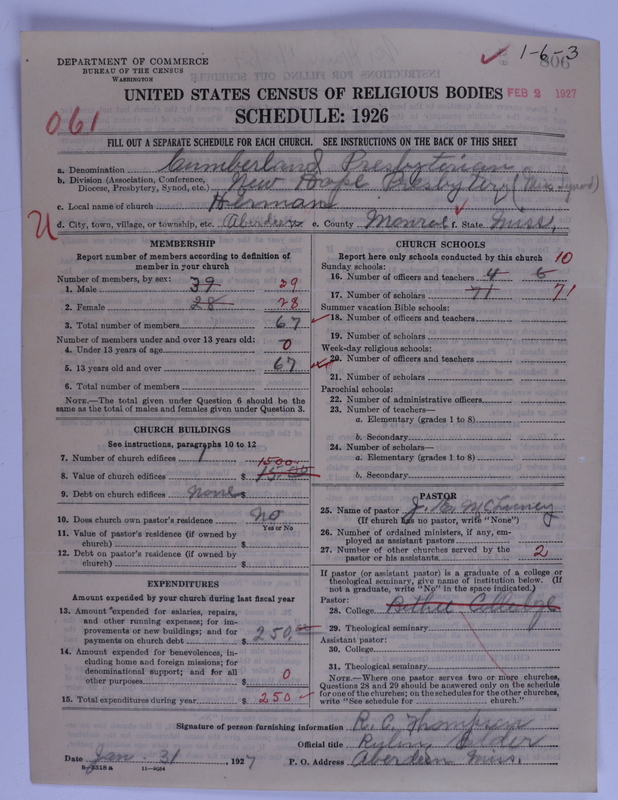 1-6-3
806
DEPARTMENT OF COMMERCE
BUREAU OF THE CENSUS
WASHINGTON
UNITED STATES CENSUS OF RELIGIOUS BODIES FEB 2 1927
SCHEDULE: 1926
061
FILL OUT A SEPARATE SCHEDULE FOR EACH CHURCH. SEE INSTRUCTIONS ON THE BACK OF THIS SHEET
a. Denomination Cumberland Presbyterian
b. Division (Association, Conference, Diocese, Presbytery, Synod, etc.) New Hope Presbytery (Miss Synod)
c. Local name of church Herman
d. City, town, village, or township, etc. Aberdeen e. County Monroe f. State Miss.
MEMBERSHIP
Report number of members according to definition of
member in your church
Number of members, by sex:
1. Male 39 39
2. Female 28 28
3. Total number of members 67
Number of members under and over 13 years old:
4. Under 13 years of age 0
5. 13 years old and over 67
6. Total number of members
NOTE.—The total given under Question 6 should be the
same as the total of males and females given under Question 3.
CHURCH BUILDINGS
See instructions, paragraphs 10 to 12
7. Number of church edifices 1
1500
8. Value of church edifices $ 15.00
9. Debt on church edifices none $
10. Does church own pastor's residence No
Yes or No
11. Value of pastor's residence (if owned by
church) $
12. Debt on pastor's residence (if owned by
church) $
EXPENDITURES
Amount expended by your church during last fiscal year
13. Amount expended for salaries, repairs,
and other running expenses; for im-
provements or new buildings; and for
payments on church debt $ 250.00
14. Amount expended for benevolences, in-
cluding home and foreign missions; for
denominational support; and for all
other purposes $ 0
15. Total expenditures during year $ 250
CHURCH SCHOOLS
Report here only schools conducted by this church 10
Sunday schools:
16. Number of officers and teachers 4 6
17. Number of scholars 71 71
Summer vacation Bible schools:
18. Number of officers and teachers
19. Number of scholars
Week-day religious schools:
20. Number of officers and teachers
21. Number of scholars
Parochial schools:
22. Number of administrative officers
23. Number of teachers—
a. Elementary (grades 1 to 8)
b. Secondary
24. Number of scholars—
a. Elementary (grades 1 to 8)
b. Secondary
PASTOR
25. Name of pastor
(If church has no pastor, write "None")
26. Number of ordained ministers, if any, em-
ployed as assistant pastors
27. Number of other churches served by the
pastor or his assistants 2
If pastor (or assistant pastor) is a graduate of a college or
theological seminary, give name of institution below. (If
not a graduate, write "No" in the space indicated.)
Pastor:
28. College Bethel Colledge
29. Theological seminary
Assistant pastor:
30. College
31. Theological seminary
NOTE.—Where one pastor serves two or more churches,
Questions 28 and 29 should be answered only on the schedule
for one of the churches; on the schedules for the other churches,
write "See schedule for church."
Signature of person furnishing information R. C. Thompson
Official title Ruling Elder
Date Jan. 31, 1927 P. O. Address Aberdeen Miss.
8-5518a 11-9024